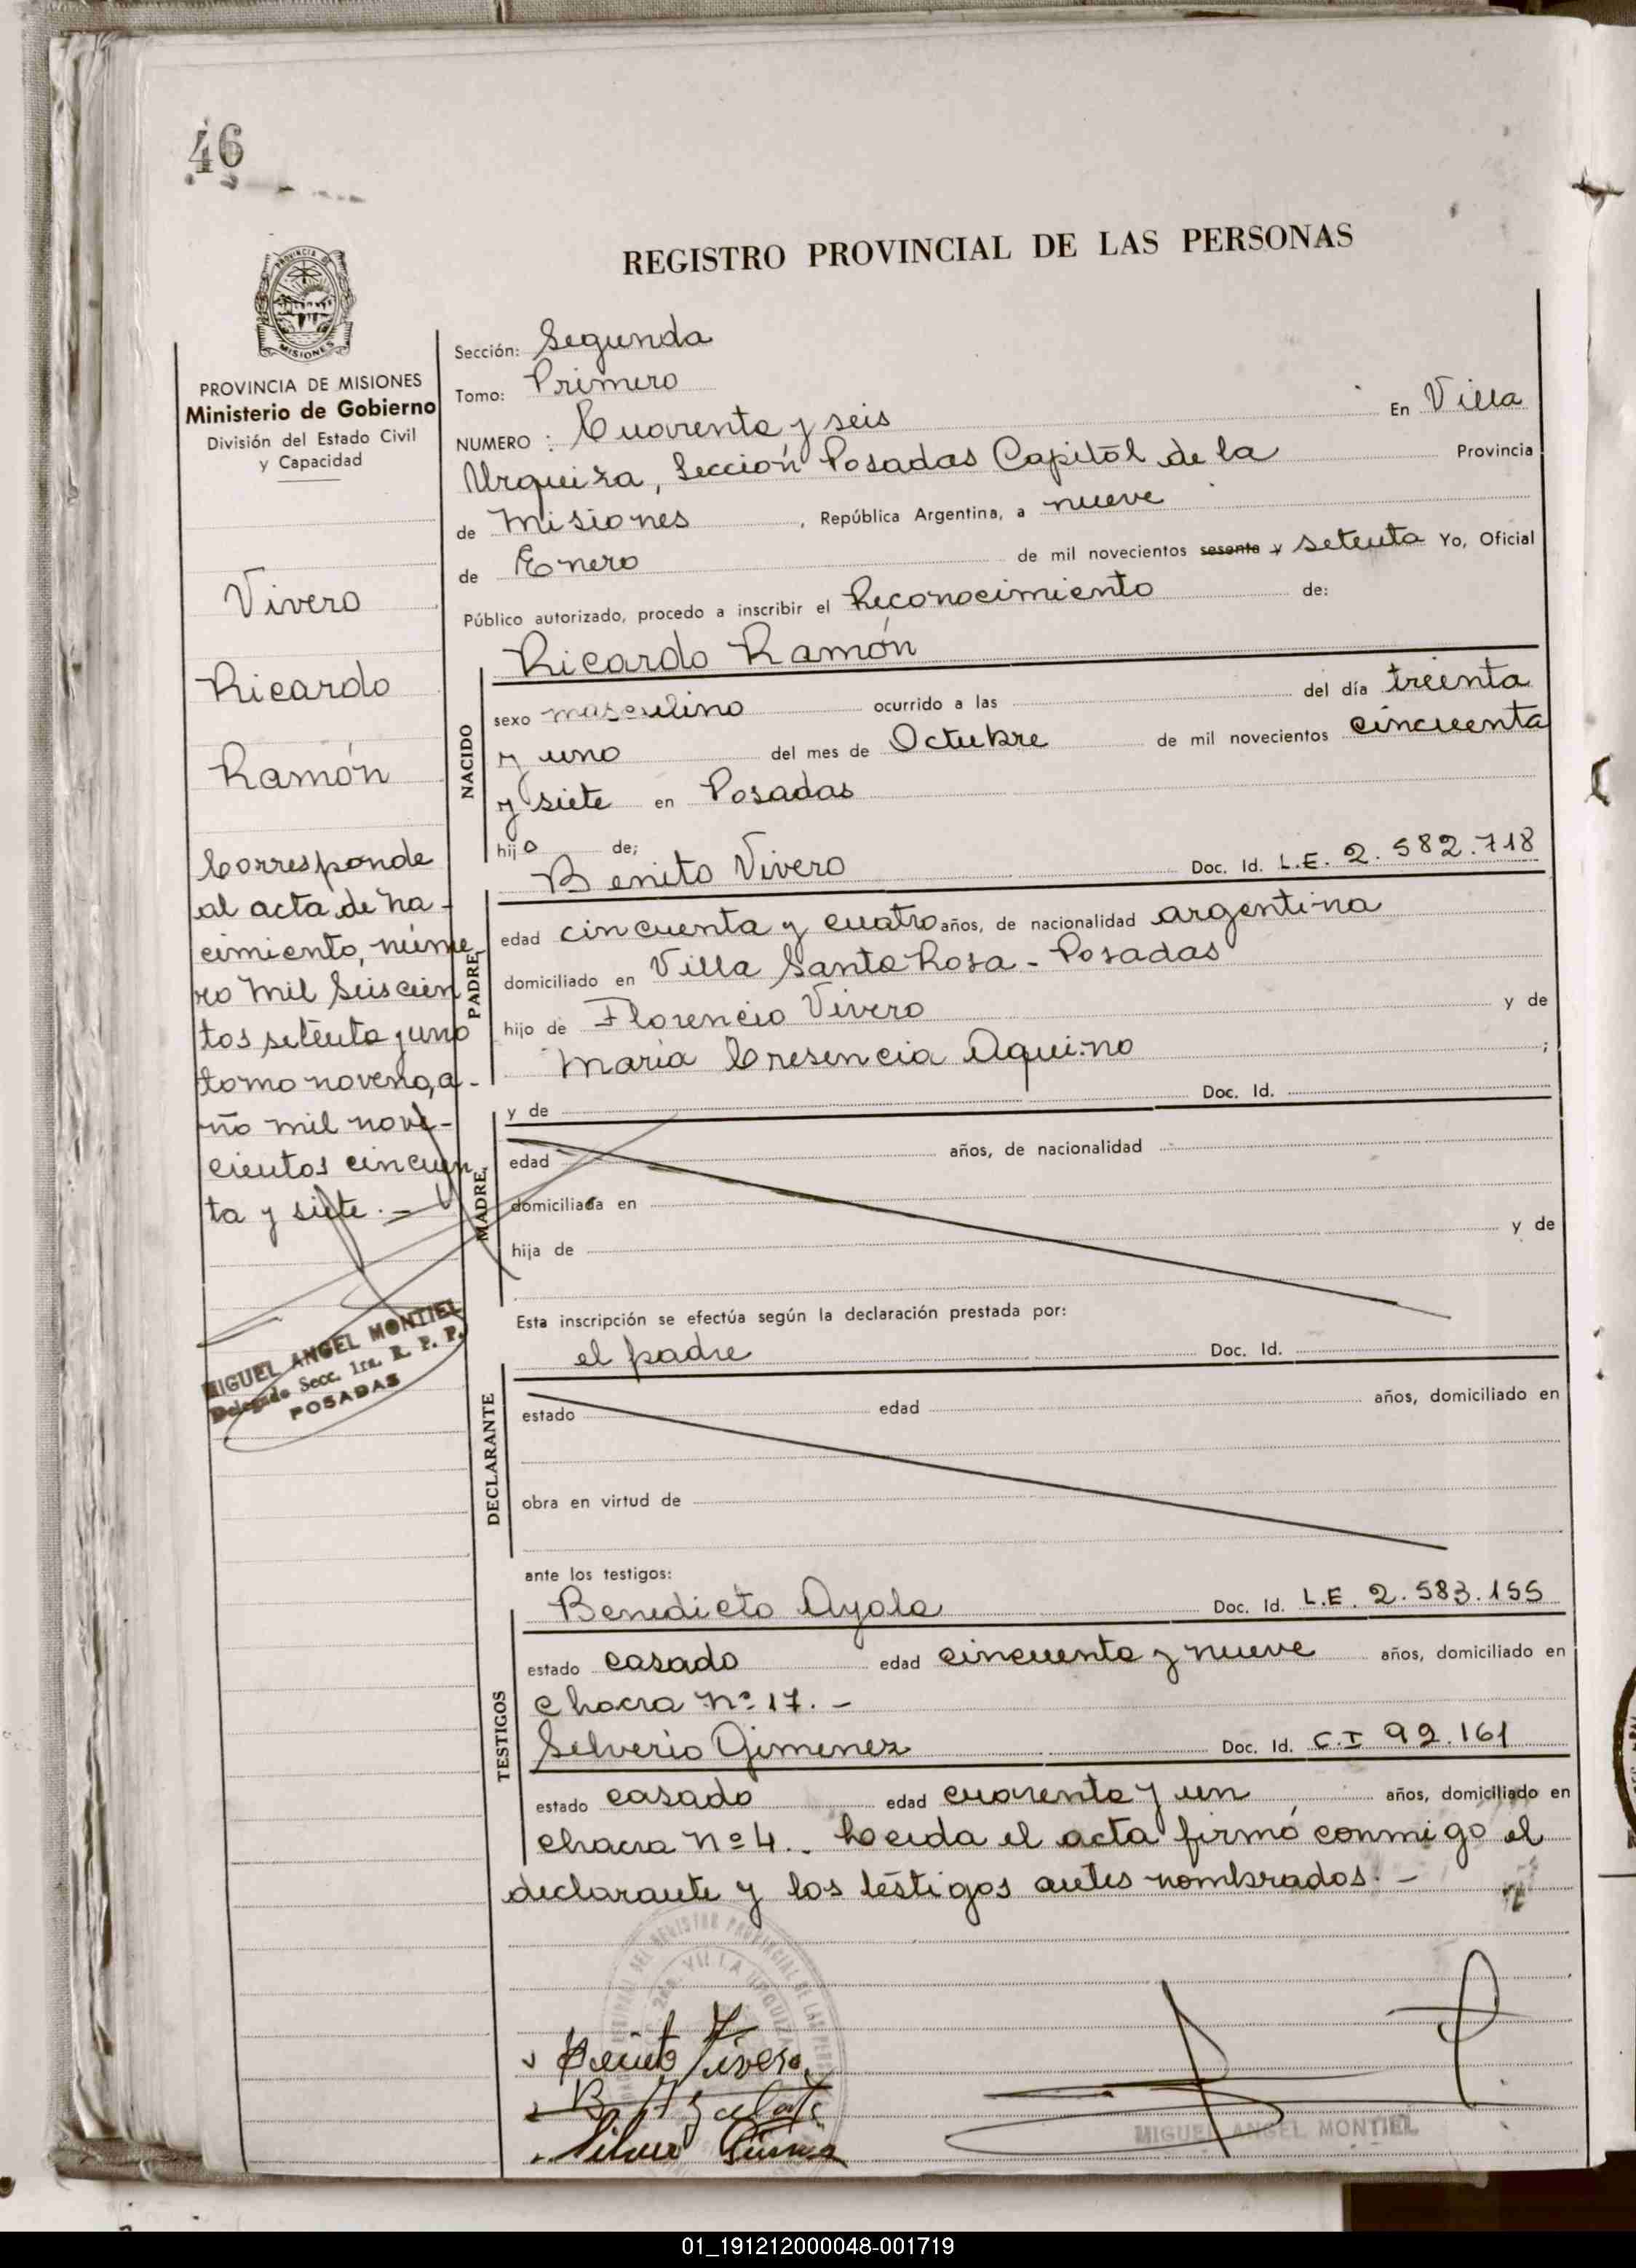 46
REGISTRO PROVINCIAL DE LAS PERSONAS
MISIONES
PROVINCIA DE MISIONES
Ministerio de Gobierno
División del Estado Civil
y Capacidad
Vivero
Ricardo
Ramón
Corresponde
al acta de na-
cimiento, núme
ro mil seiscien
tos setenta y uno
tomo noveno, a-
ño mil nove-
cientos cincuen
ta y siete.-
MIGUEL ANGEL MONTIEL
Delegado Secc. 1ra. R. P. P.
POSADAS
Sección: Segunda
Tomo: Primero
NUMERO : Cuarenta y seis En Villa
Urquiza, Sección Posadas Capitál de la Provincia
de Misiones , República Argentina, a nueve
de Enero de mil novecientos sesenta y setenta Yo, Oficial
Público autorizado, procedo a inscribir el Reconocimiento de:
Ricardo Ramón
NACIDO
sexo masculino ocurrido a las del día treinta
y uno del mes de Octubre de mil novecientos cincuenta
y siete en Posadas
hijo de;
Benito Vivero Doc. Id. L.E. 2.582.718
PADRE
edad cincuenta y cuatro años, de nacionalidad argentina
domiciliado en Villa Santa Rosa - Posadas
hijo de Florencio Vivero y de
María Cresencia Aquino ;
y de Doc. Id.
MADRE
edad años, de nacionalidad
domiciliada en
hija de y de
Esta inscripción se efectúa según la declaración prestada por:
el padre Doc. Id.
DECLARANTE
estado edad años, domiciliado en
obra en virtud de
ante los testigos:
Benedicto Ayala Doc. Id. L.E. 2.583.155
TESTIGOS
estado casado edad cincuenta y nueve años, domiciliado en
chacra nº 17.-
Silverio Gimenez Doc. Id. C.I 92.161
estado casado edad cuarenta y un años, domiciliado en
chacra nº 4. Leida el acta firmó conmigo el
declarante y los téstigos antes nombrados.-
Benito Vivero
MIGUEL ANGEL MONTIEL
01_191212000048-001719